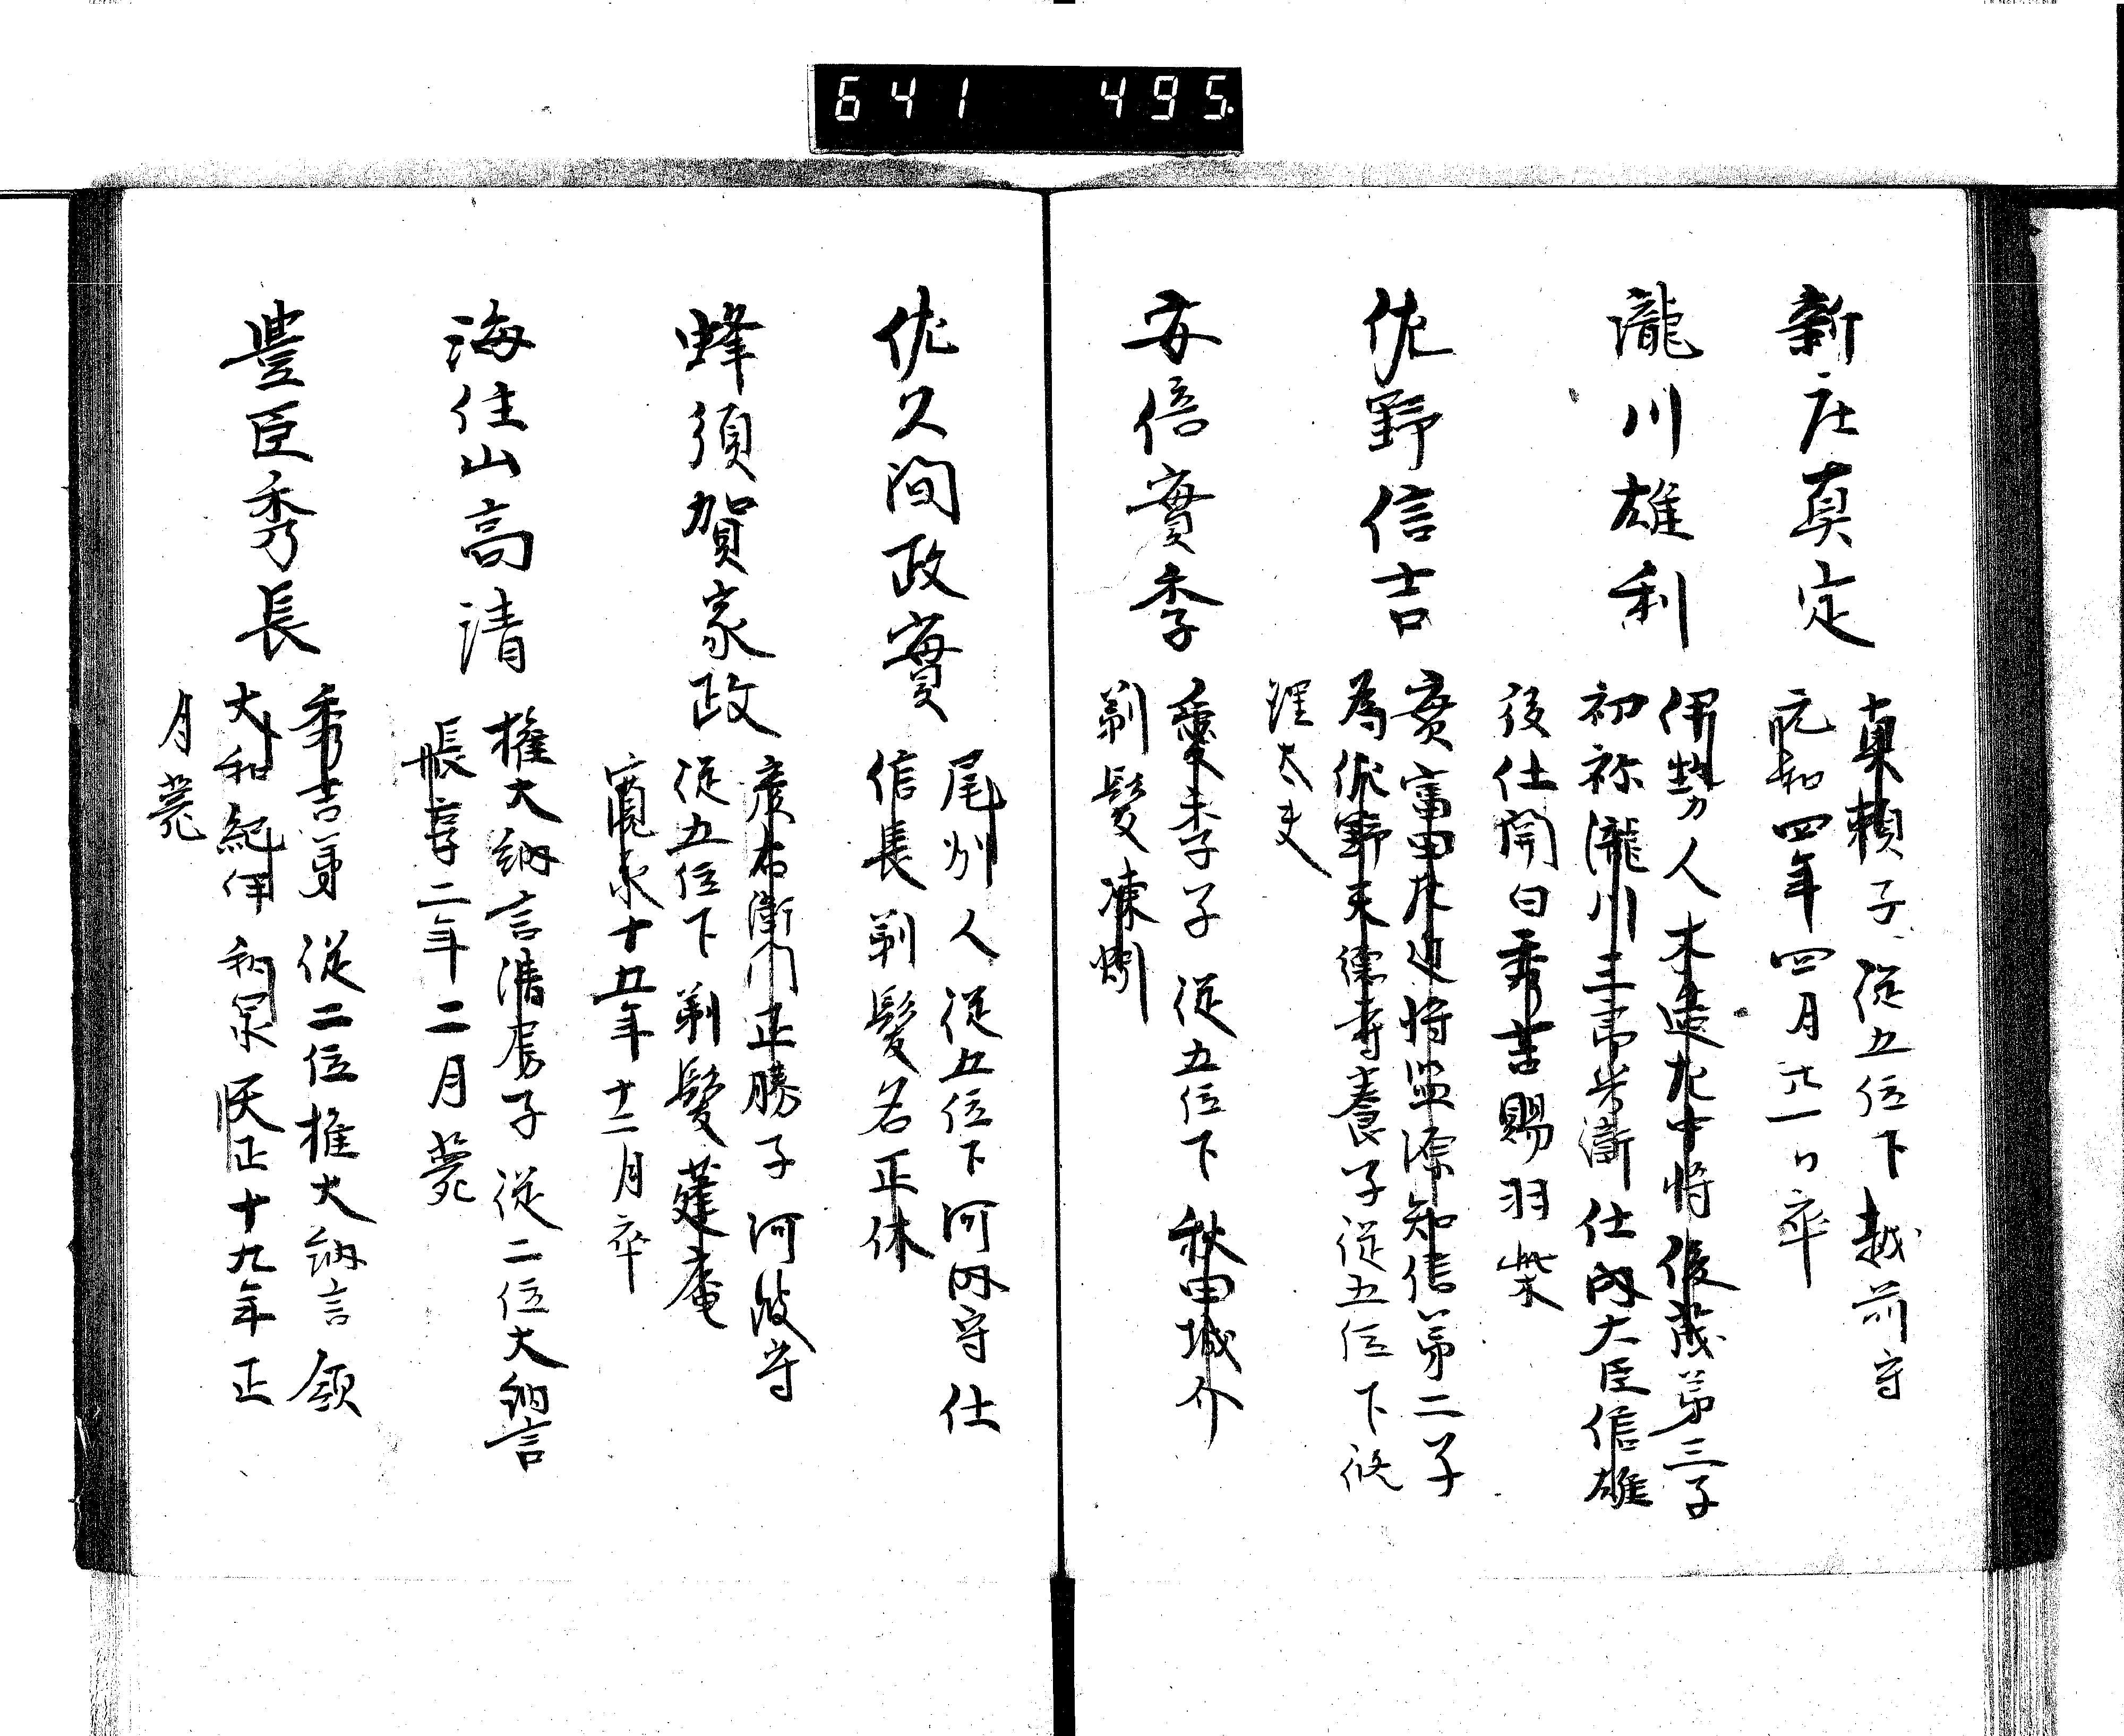 641 495
新庄真定
真頼子 従五位下越前守
元和四年四月廿一日卒
瀧川雄利
伊勢人木造左中将俊茂第三子
初称瀧川三郎兵衛仕内大臣信雄
後仕関白秀吉賜羽柴
佐野信吉
実富田左近将監源知信第二子
為佐野天徳寺養子従五位下修
理大夫
安倍實季
愛季子 従五位下 秋田城介
剃髪凍蚓
佐久間政實
尾州人従五位下河内守仕
信長剃髪名正休
蜂須賀家政
彦右衛門正勝子 阿波守
従五位下 剃髪蓬庵
寛永十五年十二月卒
海住山高清
権大納言清房子 従二位大納言
長享二年二月薨
豊臣秀長
秀吉弟 従二位権大納言 領
大和紀伊和泉 天正十九年正
月薨